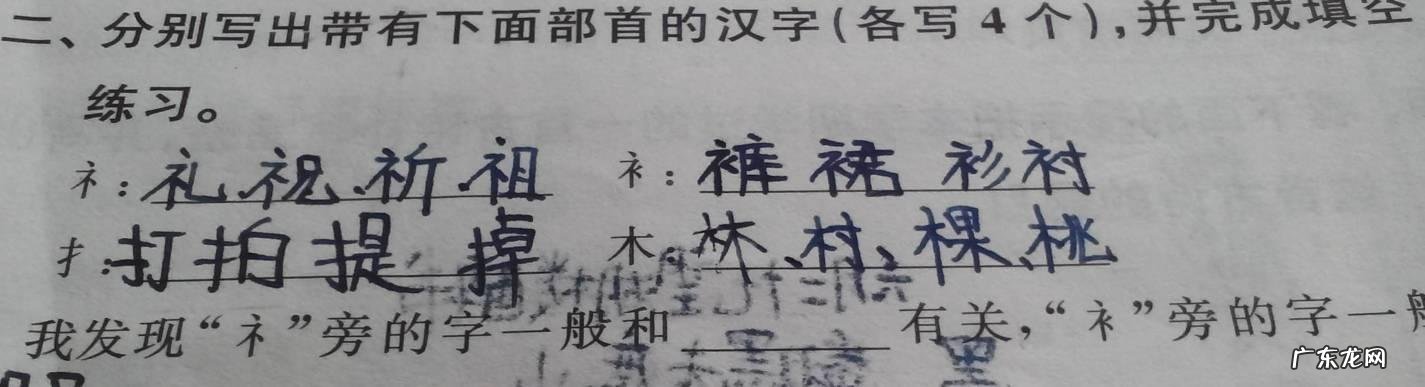 二、分别写出带有下面部首的汉字(各写 4 个),并完成填空
练习。
礻:礼、祝、祈、祖 衤:裤 裙 衫 衬
扌:打 拍 提 掉 木:林、村、棵、桃
我发现“礻”旁的字一般和______有关,“衤”旁的字一般
广东龙网